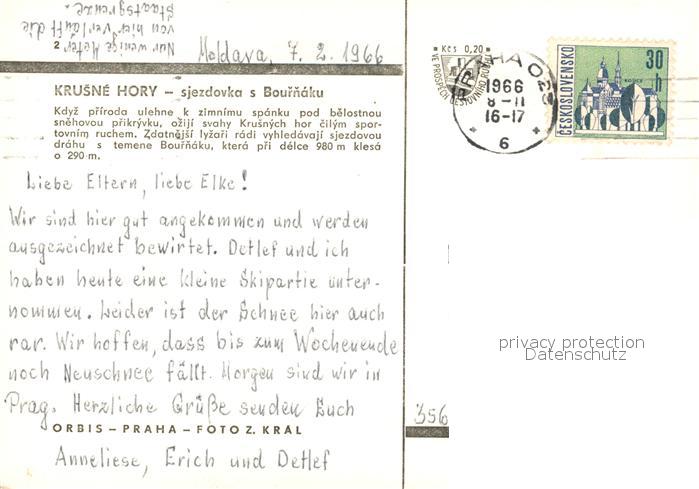 Nur wenige Meter
von hier verläuft die
Staatsgrenze.
2
Moldava, 7. 2. 1966
KRUŠNÉ HORY – sjezdovka s Bouřňáku
Když příroda ulehne k zimnímu spánku pod bělostnou
sněhovou přikrývku, ožijí svahy Krušných hor čilým spor-
tovním ruchem. Zdatnější lyžaři rádi vyhledávají sjezdovou
dráhu s temene Bouřňáku, která při délce 980 m klesá
o 290 m.
Liebe Eltern, liebe Elke!
Wir sind hier gut angekommen und werden
ausgezeichnet bewirtet. Detlef und ich
haben heute eine kleine Skipartie unter-
nommen. Leider ist der Schnee hier auch
rar. Wir hoffen, dass bis zum Wochenende
noch Neuschnee fällt. Morgen sind wir in
Prag. Herzliche Grüße senden Euch
ORBIS – PRAHA – FOTO Z. KRÁL
Anneliese, Erich und Detlef
Kčs 0,20
VE PROSPĚCH CESTOVNÍHO RUCHU
PRAHA 025
1966
8-II
16-17
6
ČESKOSLOVENSKO
30 h
KOŠICE
privacy protection
Datenschutz
356